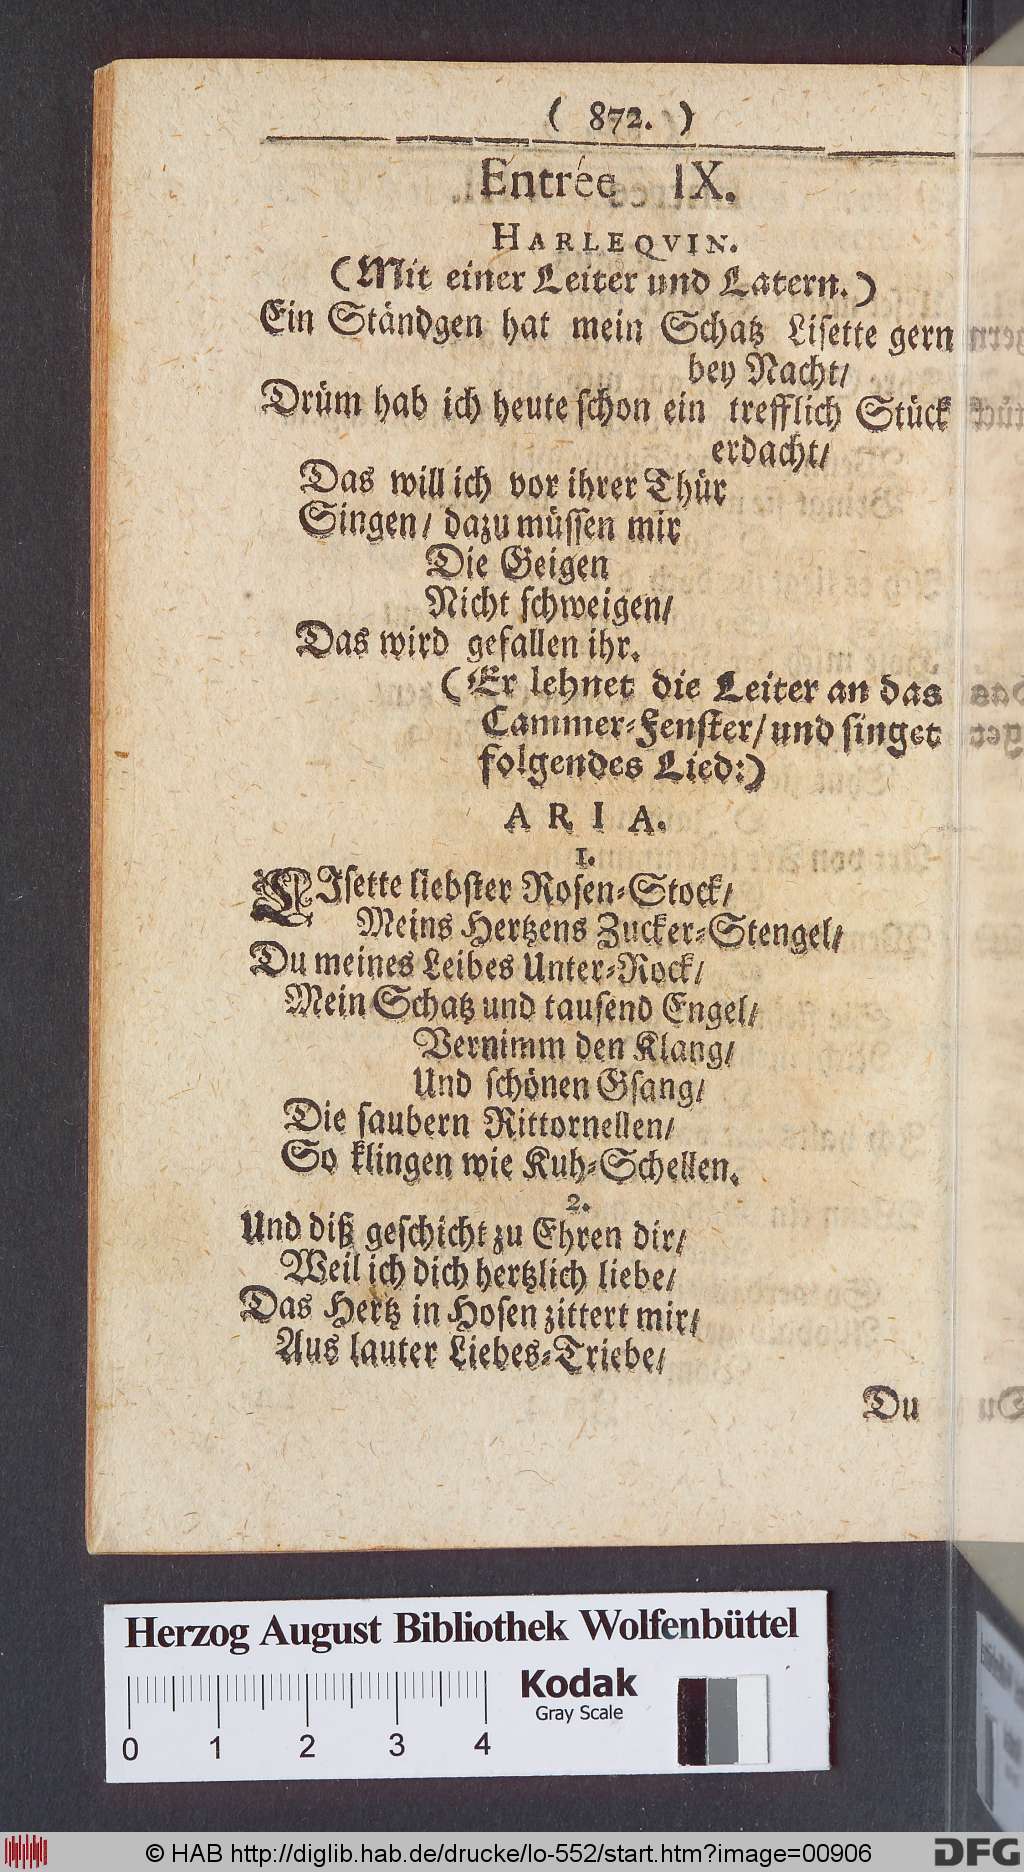 ( 872. )
Entrée IX.
HARLEQVIN.
(Mit einer Leiter und Latern.)
Ein Ständgen hat mein Schatz Lisette gern
bey Nacht/
Drüm hab ich heute schon ein trefflich Stück
erdacht/
Das will ich vor ihrer Thür
Singen/ dazu müssen mir
Die Geigen
Nicht schweigen/
Das wird gefallen ihr.
(Er lehnet die Leiter an das
Cammer-Fenster/ und singet
folgendes Lied:)
ARIA.
1.
LIsette liebster Rosen-Stock/
Meins Hertzens Zucker-Stengel/
Du meines Leibes Unter-Rock/
Mein Schatz und tausend Engel/
Vernimm den Klang/
Und schönen Gsang/
Die saubern Rittornellen/
So klingen wie Kuh-Schellen.
2.
Und diß geschicht zu Ehren dir/
Weil ich dich hertzlich liebe/
Das Hertz in Hosen zittert mir/
Aus lauter Liebes-Triebe/
Du
Herzog August Bibliothek Wolfenbüttel
Kodak
Gray Scale
0 1 2 3 4
© HAB http://diglib.hab.de/drucke/lo-552/start.htm?image=00906
DFG